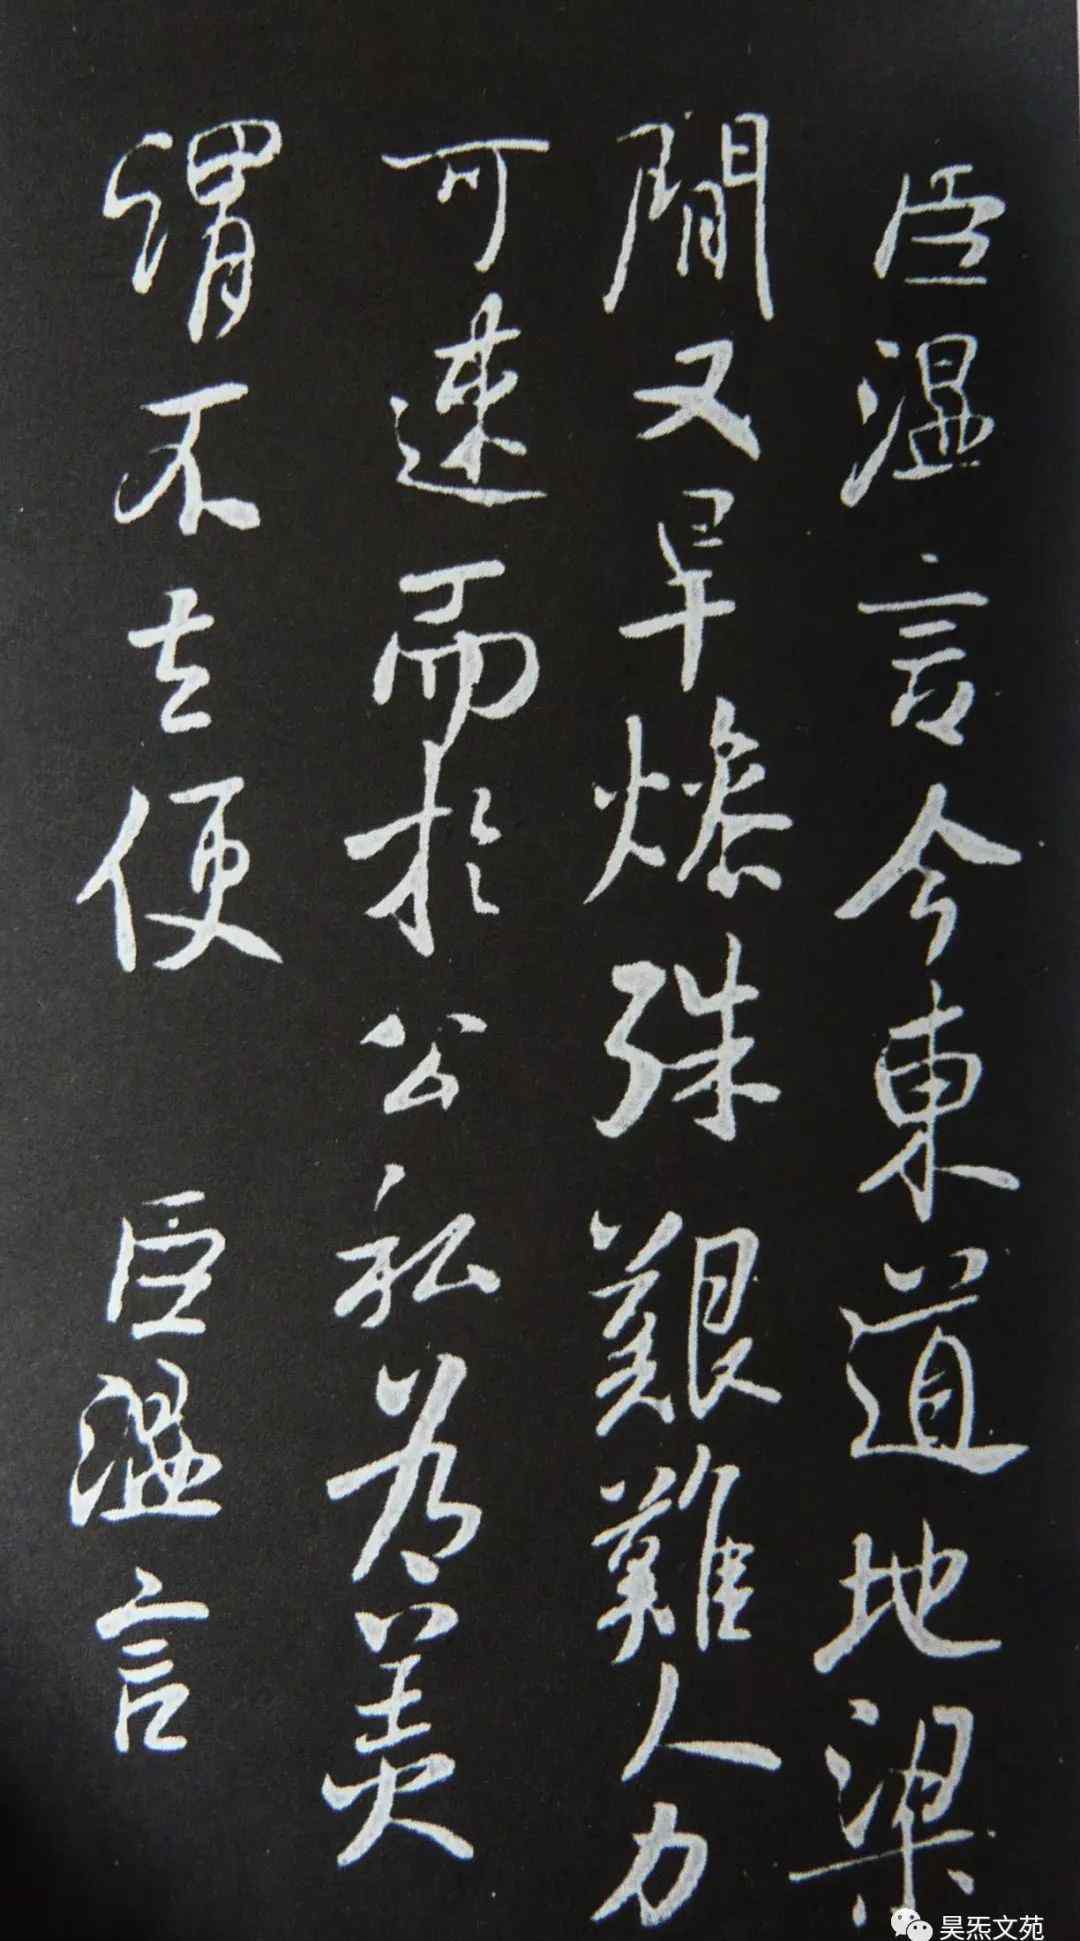 臣温言今東道地梁
間又旱燥殊艱難人力
可速而於公私為美
謂不去便 臣温言
昊炁文苑